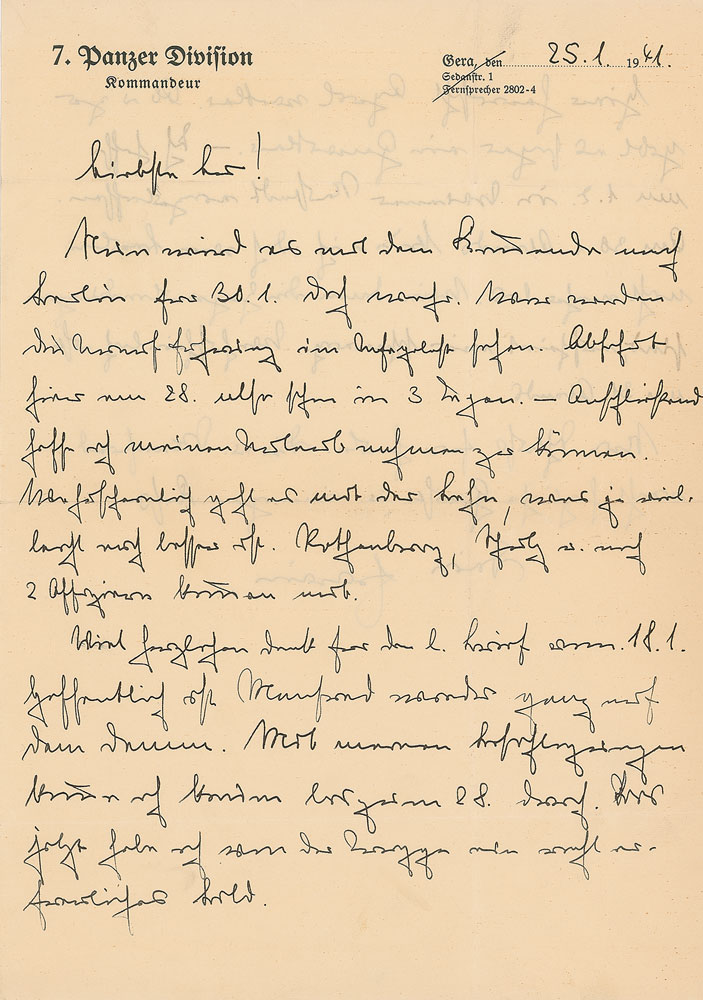 7. Panzer Division
Kommandeur
Gera, den 25.1. 1941.
Sedanstr. 1
Fernsprecher 2802-4
Liebste Lu!
Nun wird es mit dem Kommando nach
Berlin für 30.1. doch nichts. Wir werden
die am im sehen. Abfahrt
hier am 28. schon in 3 Zügen. – Anschließend
hoffe ich meinen Urlaub nehmen zu können.
Wahrscheinlich geht es mit der Bahn, was ja viel-
leicht auch besser ist. Rothenburg, u. noch
2 Offiziere kommen mit.
Viel herzlichen Dank für den l. Brief vom 18.1.
Hoffentlich ist Manfred wieder ganz auf
dem Damm. Mit meinen Besichtigungen
komme ich kaum bis zum 28. durch. Bis
jetzt habe ich von der Truppe ein recht er-
freuliches Bild.